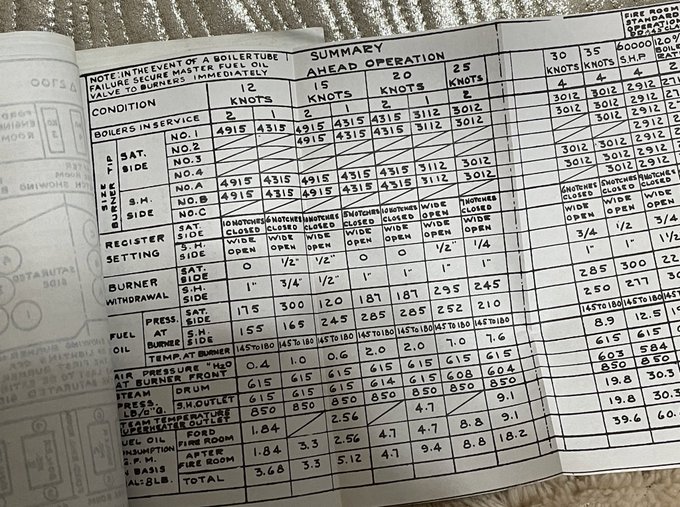 NOTE: IN THE EVENT OF A BOILER TUBE
FAILURE SECURE MASTER FUEL OIL
VALVE TO BURNERS IMMEDIATELY
SUMMARY
AHEAD OPERATION
FIRE ROOM
STANDARD
OPERATION
CONDITION 12 KNOTS 15 KNOTS 20 KNOTS 25 KNOTS 30 KNOTS 35 KNOTS 60000 S.H.P 120%
BOILERS IN SERVICE 2 1 2 1 2 1 2 4 4 4
SIZE BURNER TIP
SAT. SIDE
NO. 1 4915 4315 4915 4315 4315 3112 3012 3012 3012 2912
NO. 2 4915 4315 4315 3112 3012 3012 3012 2912
NO. 3
NO. 4 3012 3012 2912
S.H. SIDE
NO. A 4915 4315 4915 4315 4315 3112 3012 3012 3012 2912
NO. B 4915 4315 4915 4315 4315 3112 3012 3012 3012 2912
NO. C
REGISTER SETTING
SAT. SIDE 10 NOTCHES CLOSED 6 NOTCHES CLOSED NOTCHES CLOSED 5 NOTCHES CLOSED 10 NOTCHES CLOSED WIDE OPEN 7 NOTCHES CLOSED 6 NOTCHES CLOSED 5 NOTCHES CLOSED NOTCHES CLOSED
S.H. SIDE WIDE OPEN WIDE OPEN WIDE OPEN WIDE OPEN WIDE OPEN WIDE OPEN WIDE OPEN WIDE OPEN WIDE OPEN WIDE OPEN
BURNER WITHDRAWAL
SAT. SIDE 0 1/2" 1/2" 0 0 1/2" 1/4 3/4 1/2 3/4
S.H. SIDE 1" 3/4" 1/2" 1" 1" 1" 1" 1" 1"
FUEL OIL
PRESS. AT BURNER
SAT. SIDE 175 300 120 187 187 295 245 285 300
S.H. SIDE 155 165 245 285 285 252 210 250 277
TEMP. AT BURNER 145 TO 180 145 TO 180 145 TO 180 145 TO 180 145 TO 180 145 TO 180 145 TO 180 145 TO 180 145 TO 180
AIR PRESSURE "H2O
AT BURNER FRONT 0.4 1.0 0.6 2.0 2.0 7.0 7.6 8.9 12.5
STEAM PRESS. LB/□"G.
DRUM 615 615 615 615 615 615 615 615 615
S.H. OUTLET 615 615 615 614 615 608 604 603 584
STEAM TEMPERATURE
SUPERHEATER OUTLET 850 850 850 850 850 850 850 850 850
FUEL OIL
CONSUMPTION
G.P.M.
BASIS
GAL=8LB.
FORD FIRE ROOM 1.84 2.56 4.7 9.1 19.8 30.3
AFTER FIRE ROOM 1.84 3.3 2.56 4.7 4.7 8.8 9.1 19.8 30.3
TOTAL 3.68 3.3 5.12 4.7 9.4 8.8 18.2 39.6